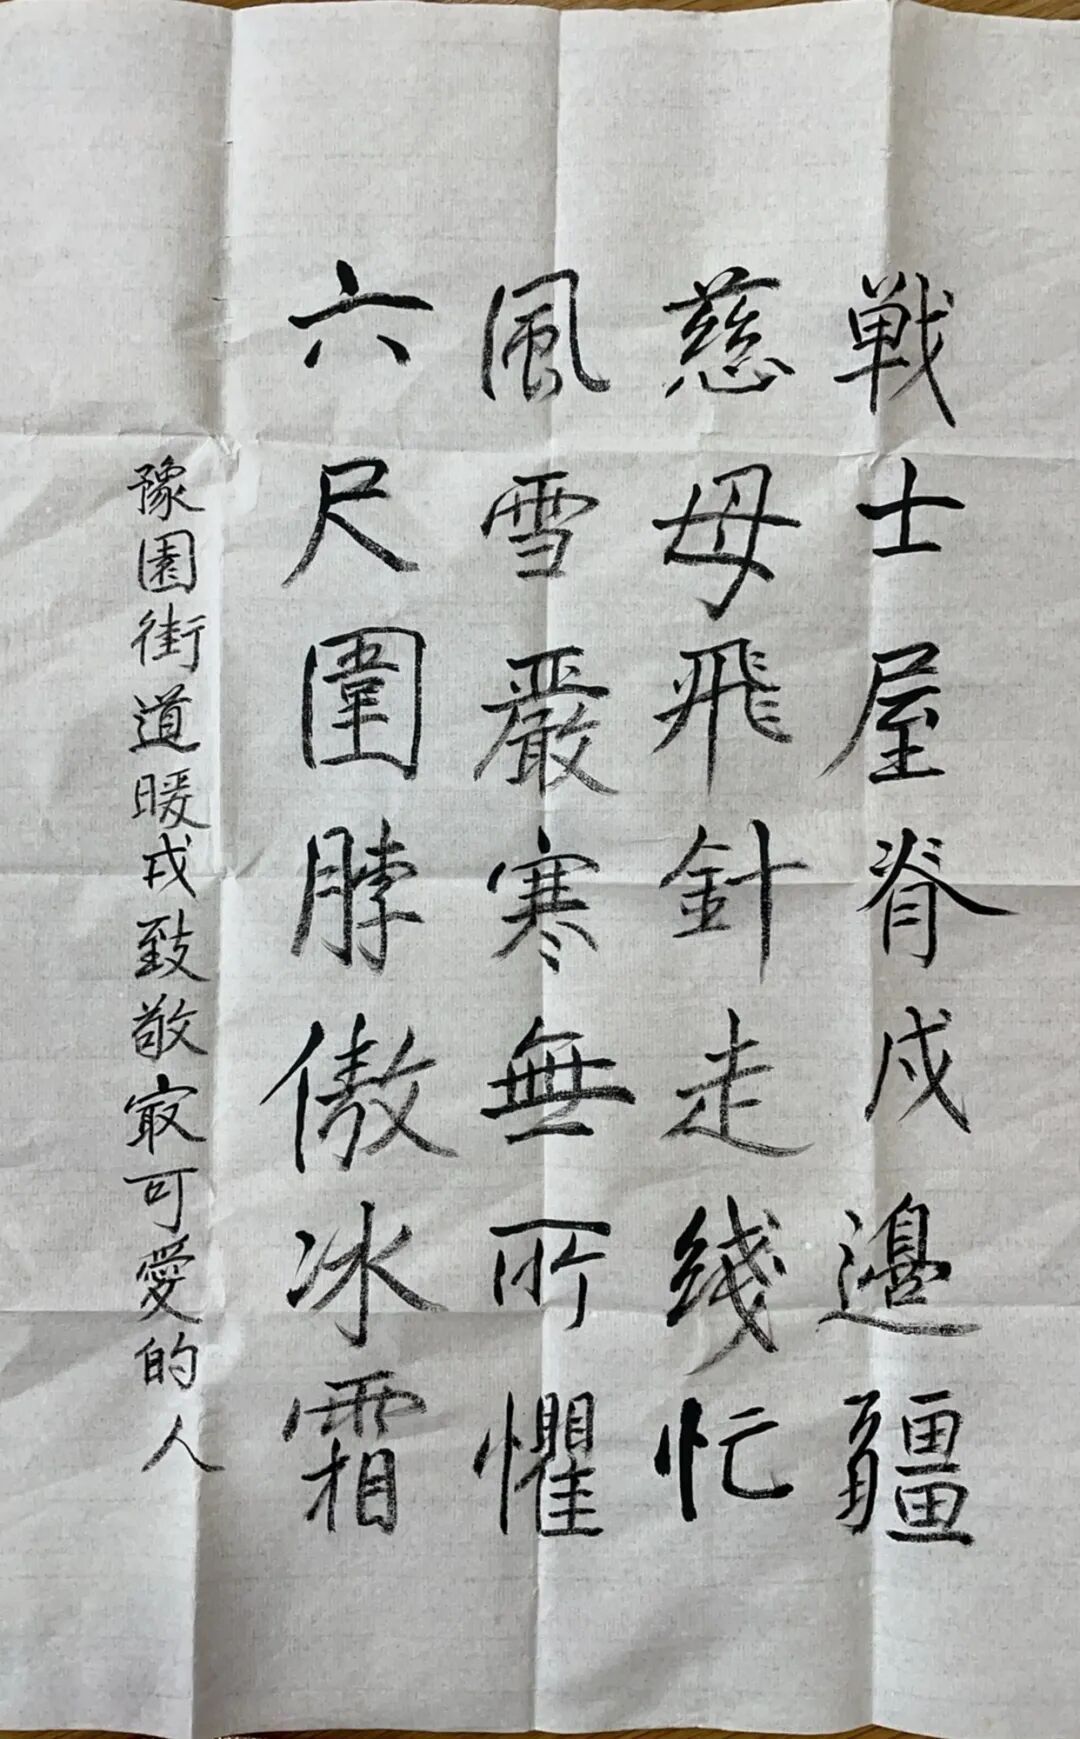 戦士屋脊戍邊疆
慈母飛針走綫忙
風雪嚴寒無所懼
六尺圍脖傲冰霜
豫園街道暖戍致敬㝡可愛的人